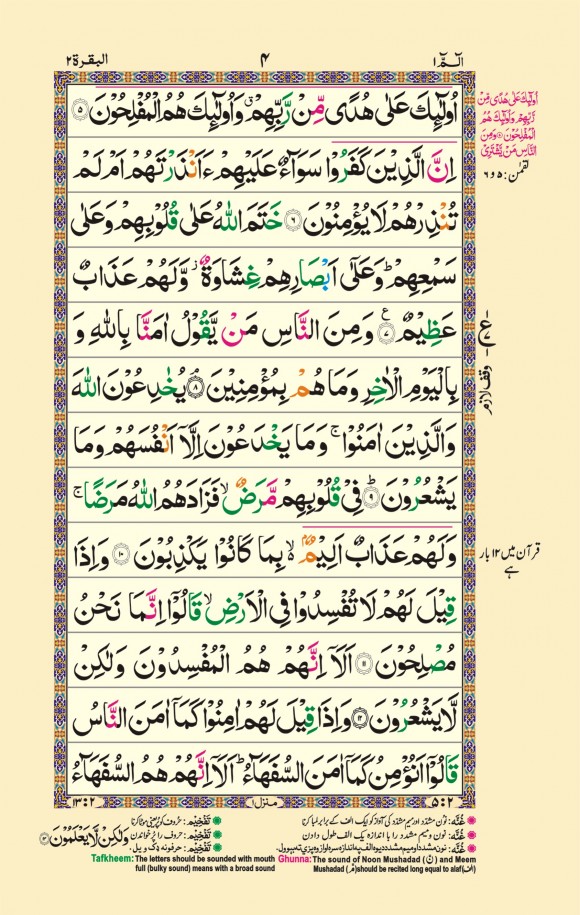 الٓمّٓ ١
٤
البقرة ٢
اُولٰٓئِكَ عَلٰى هُدًى مِّنْ رَّبِّهِمْ ۗ وَاُولٰٓئِكَ هُمُ الْمُفْلِحُوْنَ ۝٥
اِنَّ الَّذِيْنَ كَفَرُوْا سَوَآءٌ عَلَيْهِمْ ءَاَنْذَرْتَهُمْ اَمْ لَمْ
تُنْذِرْهُمْ لَا يُؤْمِنُوْنَ ۝٦ خَتَمَ اللّٰهُ عَلٰى قُلُوْبِهِمْ وَعَلٰى
سَمْعِهِمْ ؕ وَعَلٰٓى اَبْصَارِهِمْ غِشَاوَةٌ ؗ وَّلَهُمْ عَذَابٌ
عَظِيْمٌ ۝٧ وَمِنَ النَّاسِ مَنْ يَّقُوْلُ اٰمَنَّا بِاللّٰهِ وَ
بِالْيَوْمِ الْاٰخِرِ وَمَا هُمْ بِمُؤْمِنِيْنَ ۝٨ يُخٰدِعُوْنَ اللّٰهَ
وَالَّذِيْنَ اٰمَنُوْا ۚ وَمَا يَخْدَعُوْنَ اِلَّآ اَنْفُسَهُمْ وَمَا
يَشْعُرُوْنَ ؕ ۝٩ فِيْ قُلُوْبِهِمْ مَّرَضٌ ۙ فَزَادَهُمُ اللّٰهُ مَرَضًا ۚ
وَلَهُمْ عَذَابٌ اَلِيْمٌۢ ۙ بِمَا كَانُوْا يَكْذِبُوْنَ ۝١٠ وَاِذَا
قِيْلَ لَهُمْ لَا تُفْسِدُوْا فِي الْاَرْضِ ۙ قَالُوْٓا اِنَّمَا نَحْنُ
مُصْلِحُوْنَ ۝١١ اَلَآ اِنَّهُمْ هُمُ الْمُفْسِدُوْنَ وَلٰكِنْ
لَّا يَشْعُرُوْنَ ۝١٢ وَاِذَا قِيْلَ لَهُمْ اٰمِنُوْا كَمَآ اٰمَنَ النَّاسُ
قَالُوْٓا اَنُؤْمِنُ كَمَآ اٰمَنَ السُّفَهَآءُ ؕ اَلَآ اِنَّهُمْ هُمُ السُّفَهَآءُ
اُولٰٓئِكَ عَلٰى هُدًى مِّنْ
رَّبِّهِمْ وَاُولٰٓئِكَ هُمُ
الْمُفْلِحُوْنَ ۝ وَمِنَ
النَّاسِ مَنْ يَّشْتَرِيْ
لقمٰن: ٥ و ٦
ع
وقف لازم
قرآن میں ۱۲ بار
ہے
٥:٢
منزل ١
١٣:٢
وَلٰكِنْ لَّا يَعْلَمُوْنَ ۝١٣
غُنَّه: نون مشدد اور میم مشدد کی آواز کو ایک الف کے برابر لمبا کرنا
تَفْخِيْم: حروف کو پُر یعنی موٹا کرنا
غُنَّه: نون و میم مشدد را با اندازه یک الف طول دادن
تَفْخِيْم: حروف را پُر خواندن
Tafkheem: The letters should be sounded with mouth
full (bulky sound) means with a broad sound
Ghunna: The sound of Noon Mushadad (نّ) and Meem
Mushadad (مّ) should be recited long equal to alaf (الف)